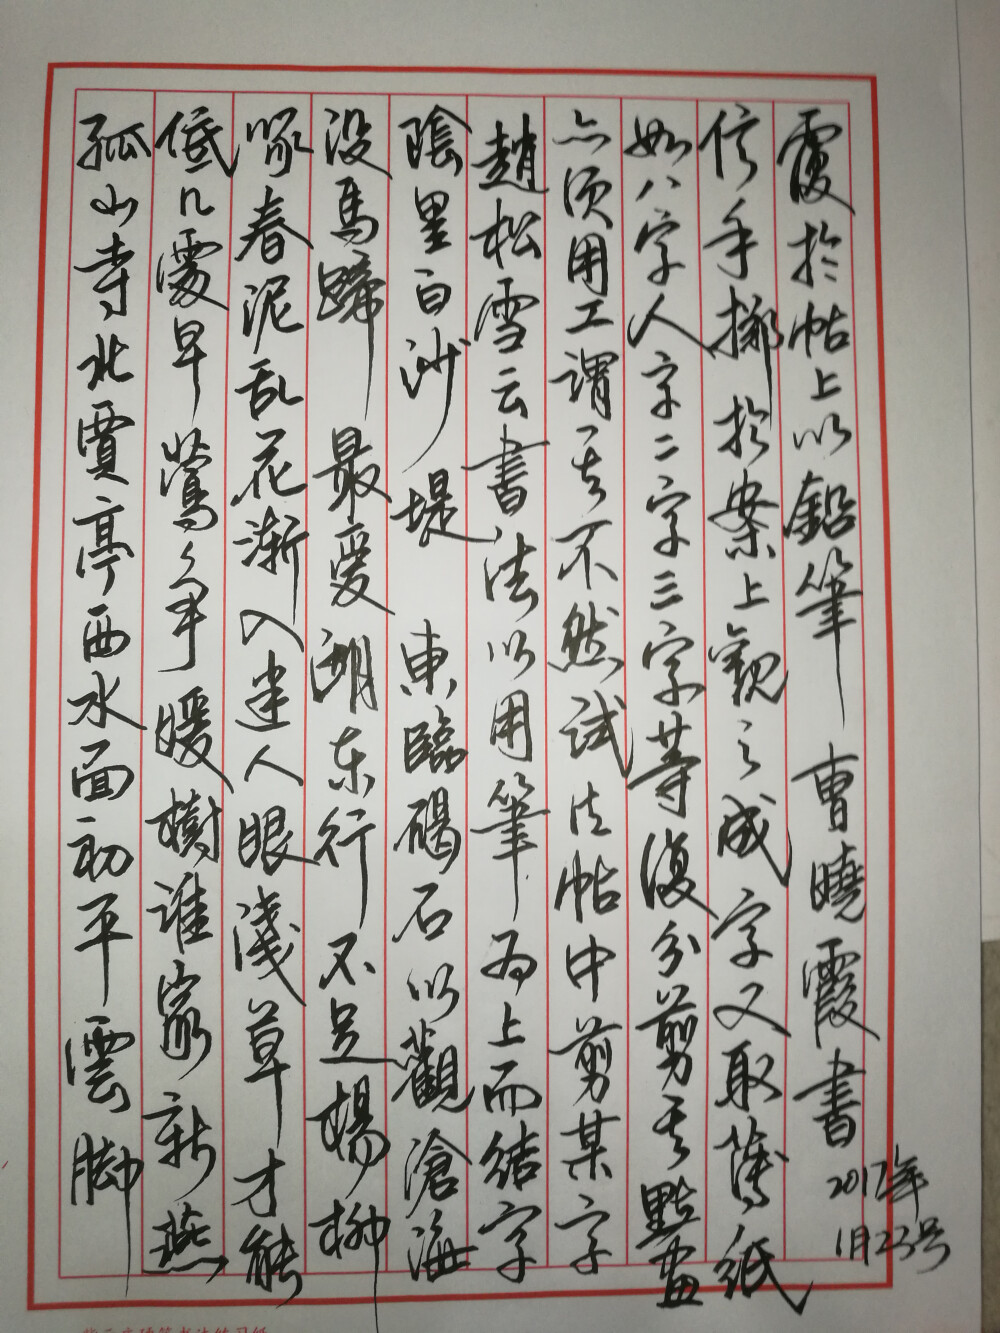 孤山寺北賈亭西水面初平雲脚
低几處早鶯争暖樹谁家新燕
啄春泥乱花渐入迷人眼淺草才能
没馬蹄最愛湖东行不足楊柳
陰里白沙堤東臨碣石以觀滄海
趙松雪云書法以用筆为上而结字
亦须用工謂其不然試法帖中剪某字
如八字人字二字三字等復分剪其點畫
信手擲於案上觀之成字又取薄紙
覆於帖上以鉛筆 曹曉霞書
2017年
1月23号